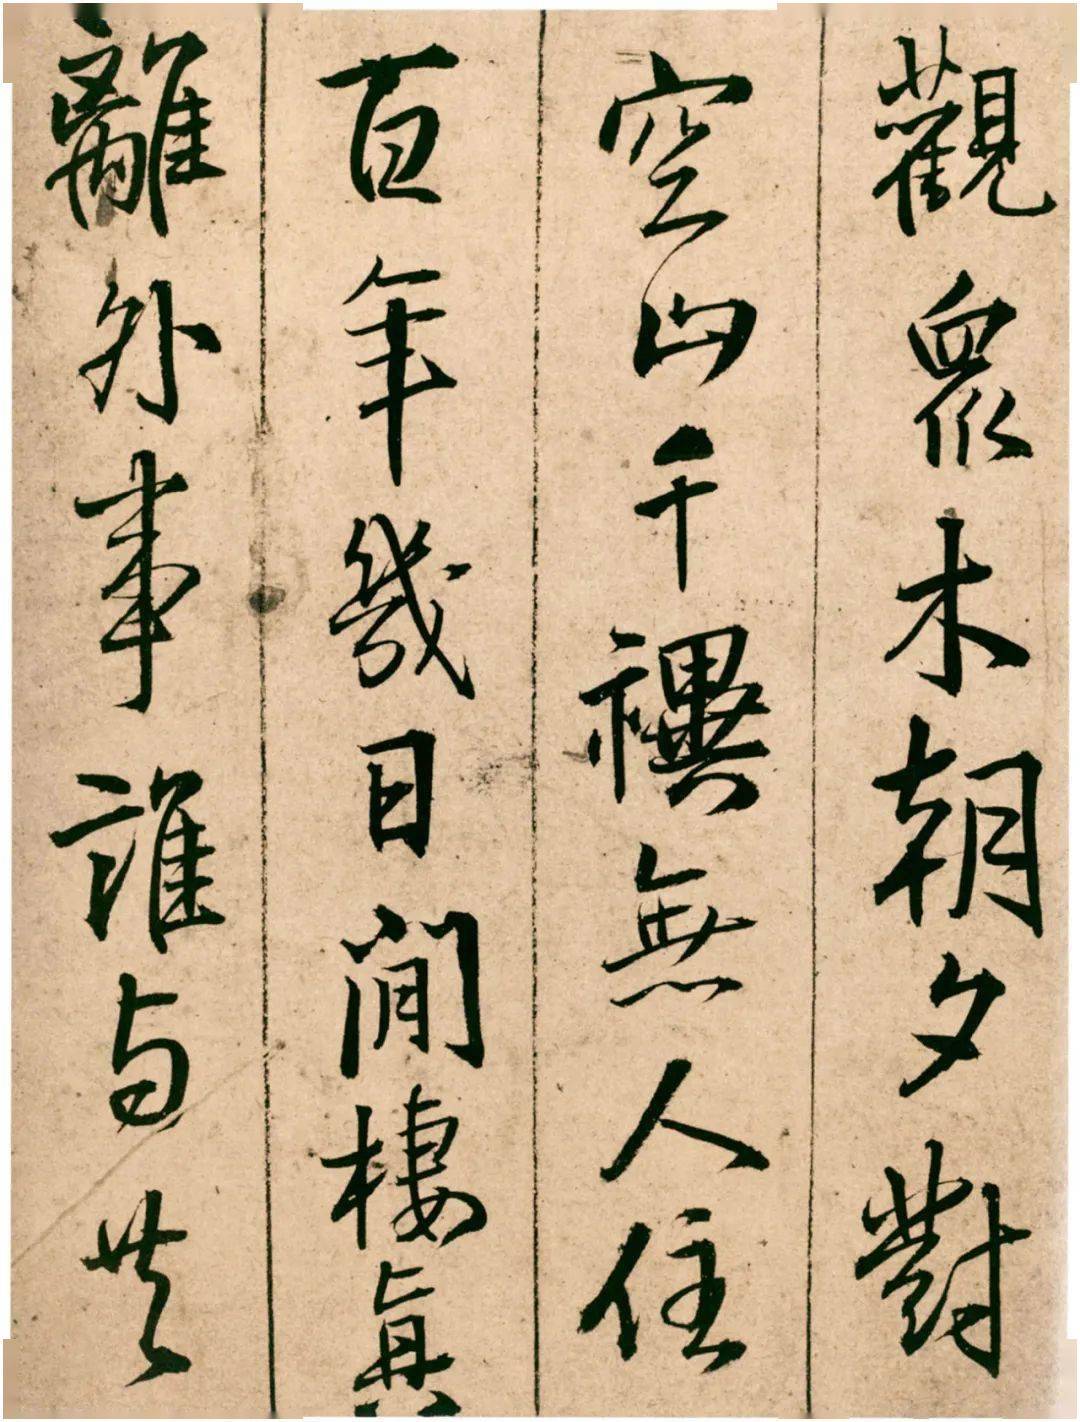 觀眾木朝夕對
空山千禩無人住
百年幾日閒棲真
離外事誰与共